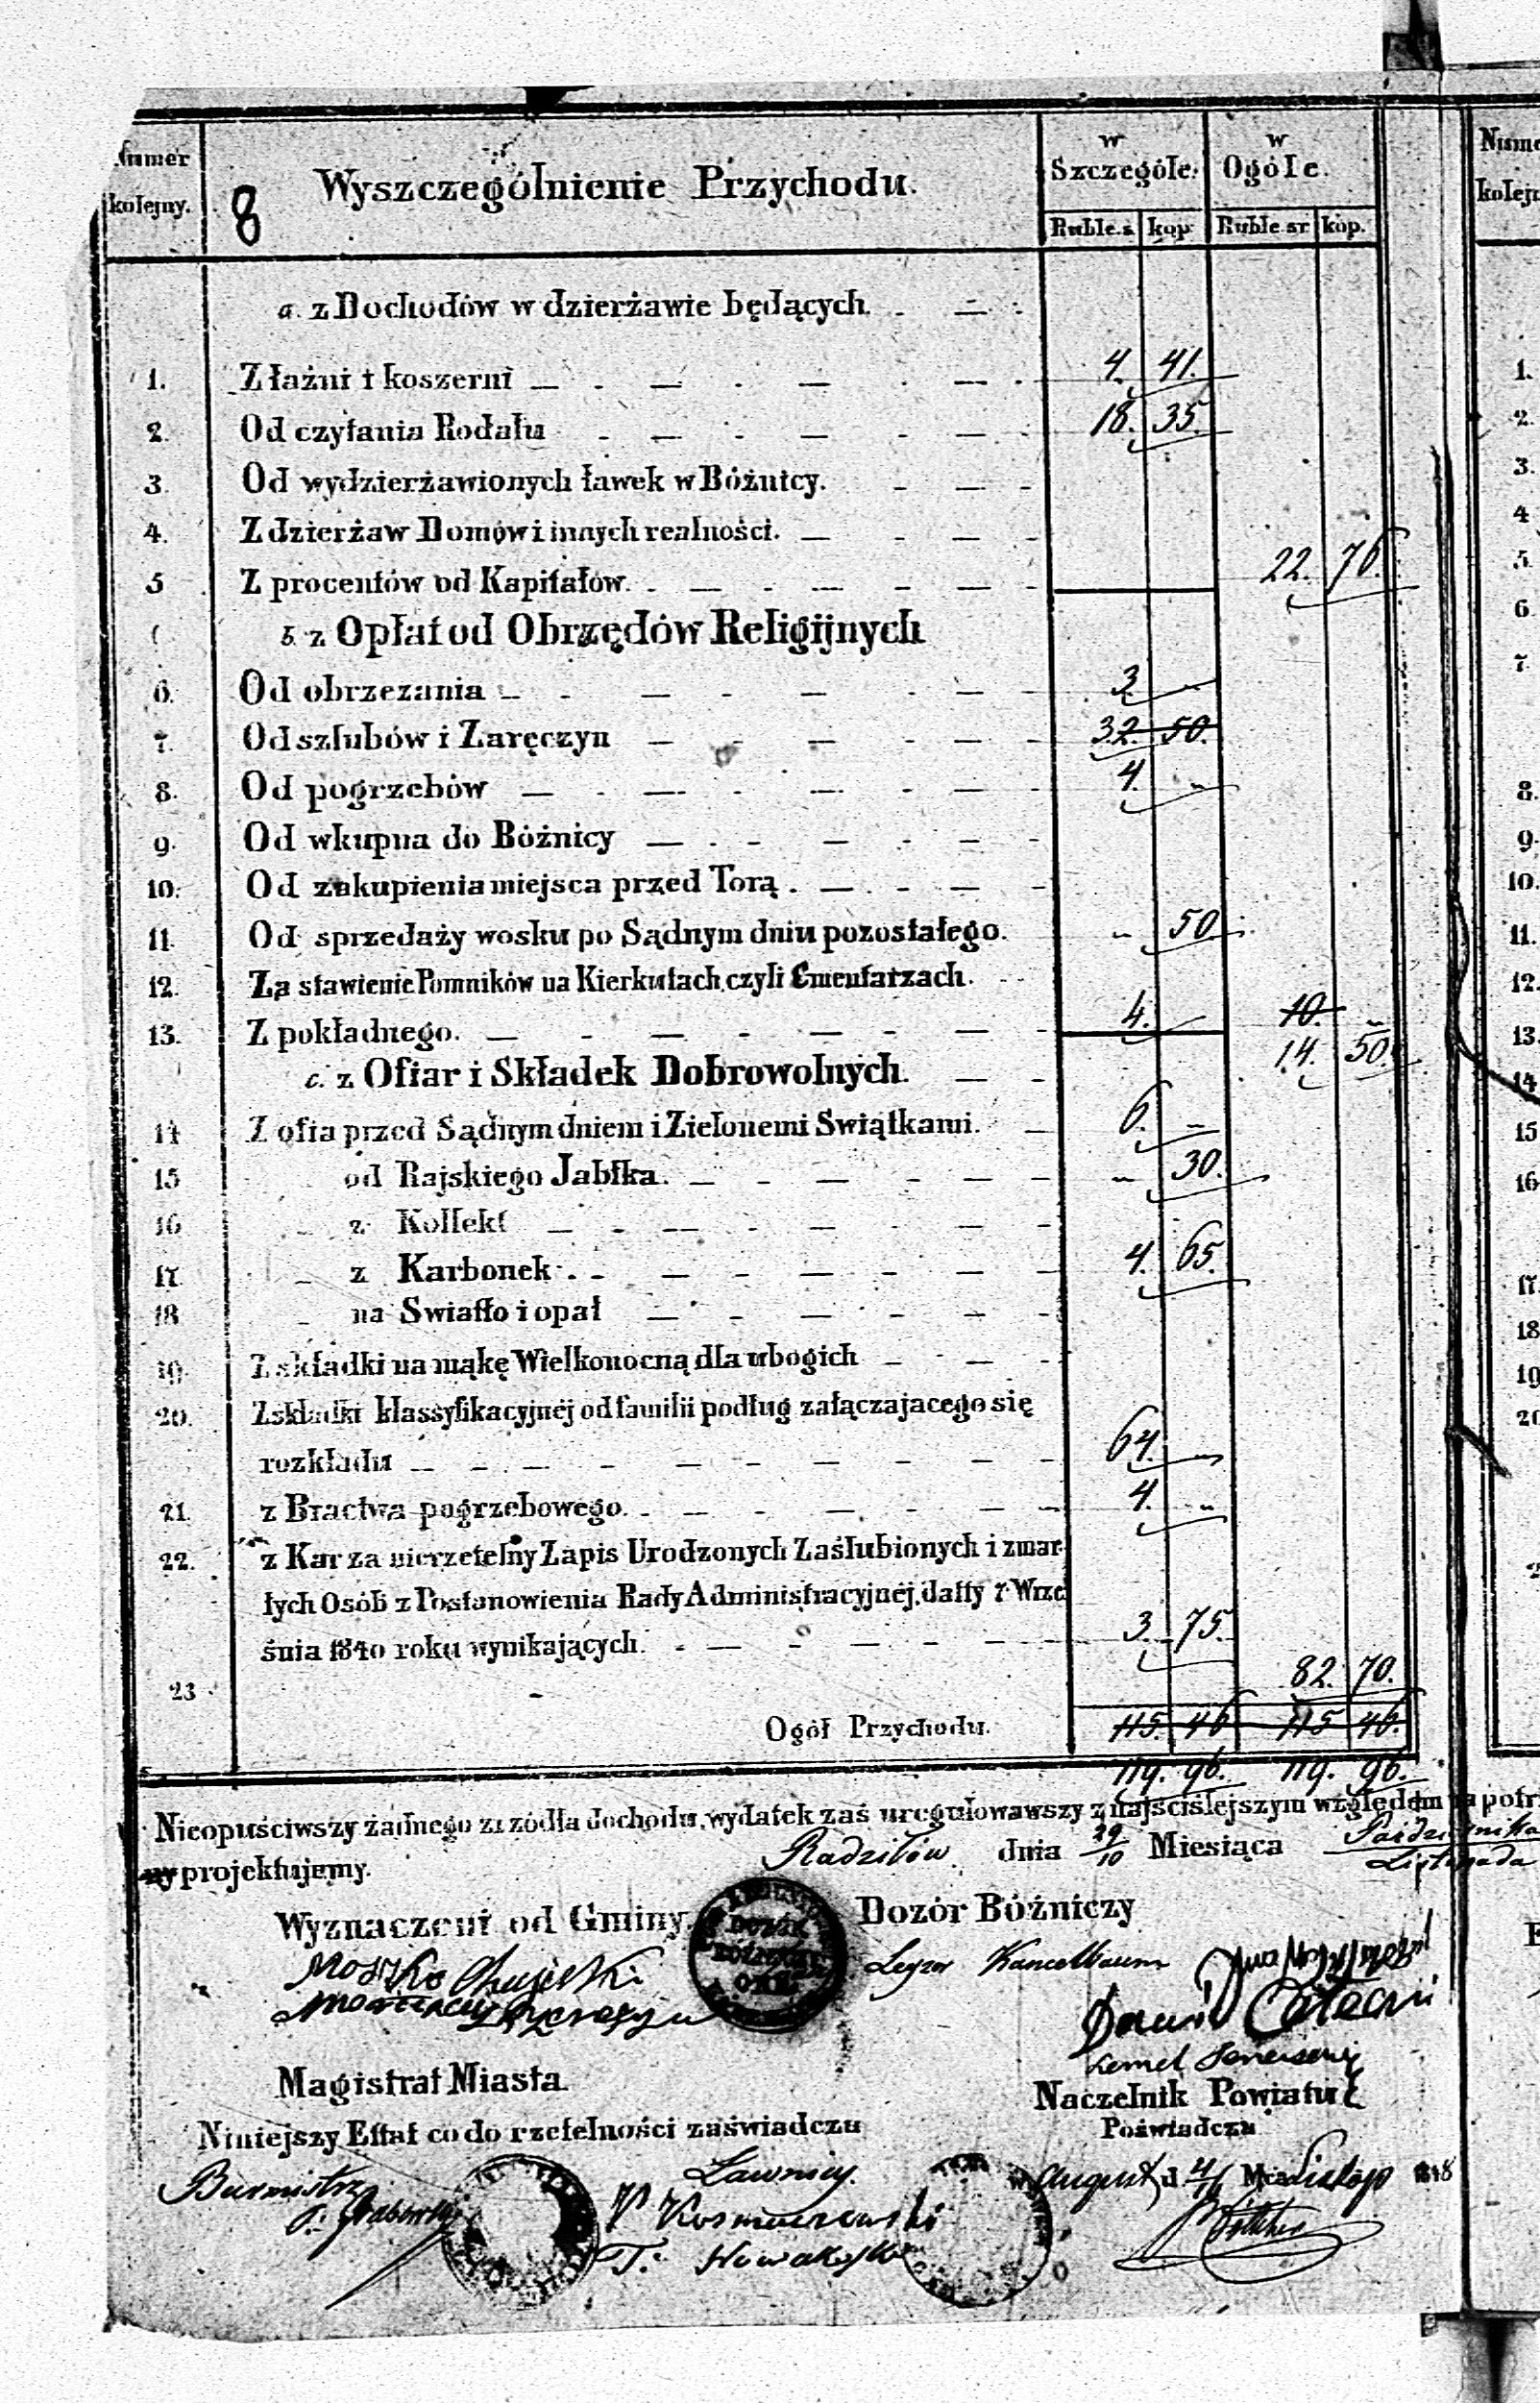 Numer
kolejny.
8
Wyszczególnienie Przychodu.
w
Szczególe.
w
Ogóle.
Ruble s. kop. Ruble sr kop.
a. z Dochodów w dzierżawie będących.
1. Z łaźni i koszerni 4. 41.
2. Od czytania Rodału 18. 35.
3. Od wydzierżawionych ławek w Bóżnicy.
4. Z dzierżaw Domów i innych realności.
5 Z procentów od Kapitałów. 22. 76.
b. z Opłat od Obrzędów Religijnych
6. Od obrzezania 3 „
7. Od szlubów i Zaręczyn 32. 50.
8. Od pogrzebów 4. „
9. Od wkupna do Bóżnicy
10. Od zakupienia miejsca przed Torą.
11. Od sprzedaży wosku po Sądnym dniu pozostałego. „ 50
12. Za stawienie Pomników na Kierkutach czyli Cmentarzach.
13. Z pokładnego. 4. 10. „
14. 50.
c. z Ofiar i Składek Dobrowolnych.
14 Z ofia przed Sądnym dniem i Zielonemi Swiątkami. 6. „
15 od Rajskiego Jabłka. „ 30.
16 z Kollekt
17. z Karbonek. 4. 65.
18 na Swiatło i opał
19. Z składki na mąkę Wielkonocną dla ubogich
20. Z składki klassyfikacyjnéj od familii podług załączajacego się
rozkładu 64. „
21. z Bractwa pogrzebowego. 4. „
22. z Kar za nierzetelny Zapis Urodzonych Zaślubionych i zmar-
łych Osób z Postanowienia Rady Administracyjnéj, datty 7 Wrze
śnia 1840 roku wynikających. 3. 75.
23 82. 70.
Ogół Przychodu. 115. 46 115 46.
119. 96. 119. 96.
Nieopuściwszy żadnego zrzódła dochodu, wydatek zaś uregulowawszy z najściślejszym względem na potr
ny projektujemy.
Radziłów dnia 29/10 Miesiąca Październka
Listopada
Wyznaczeni od Gminy
Dozór Bóżniczy
DOZÓR
Moszko
Leyzor
Magistrat Miasta
Naczelnik Powiatu
Niniejszy Ettat co do rzetelności zaświadcza
Poświadcza
Burmistrz
Ławnicy.
August d 4/11 Mca Listop 1848
T. Nowakosk